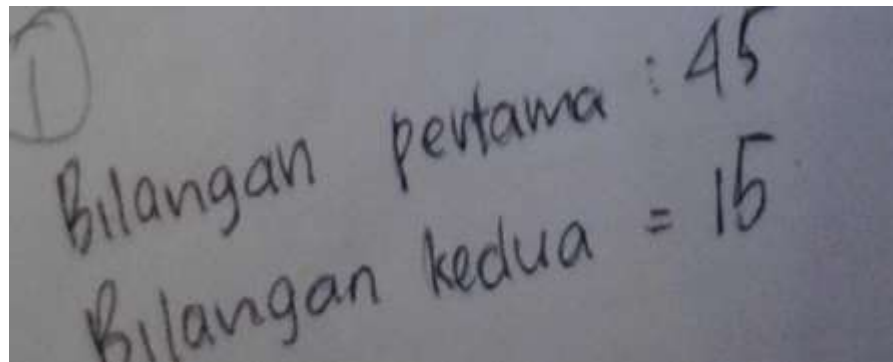 1
Bilangan pertama : 45
Bilangan kedua = 15